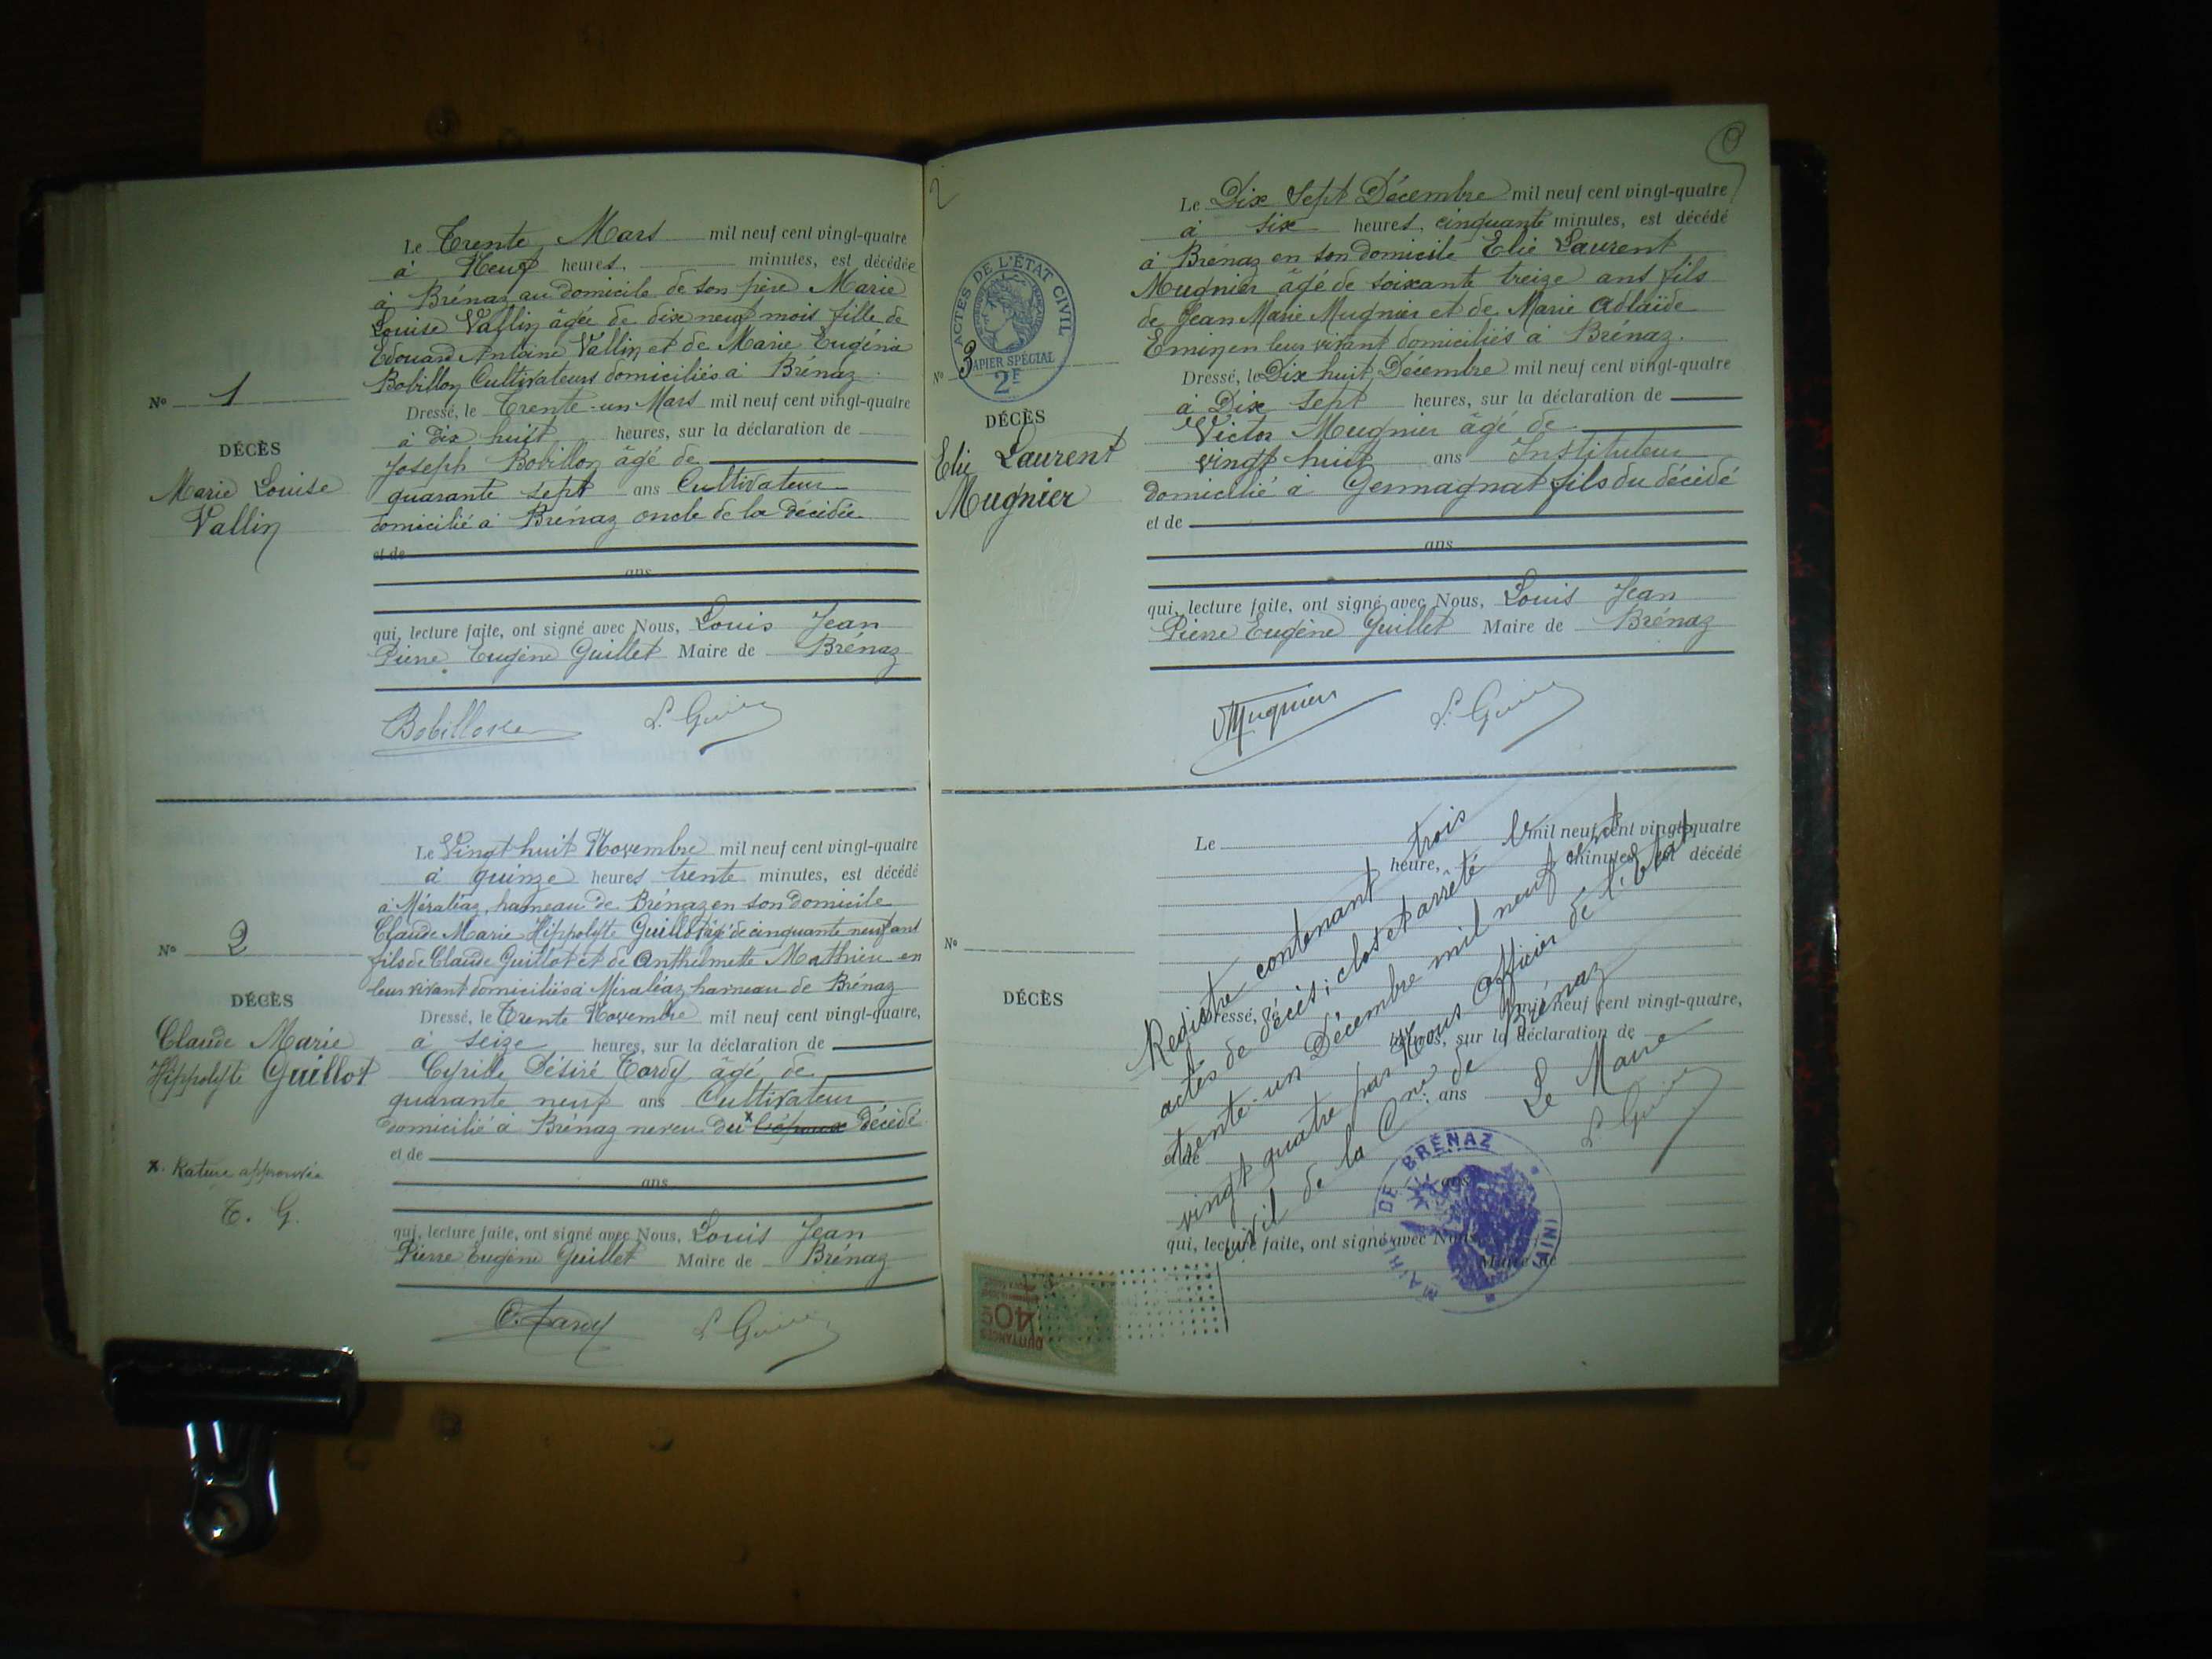 Le Trente Mars mil neuf cent vingt-quatre
à Neuf heures, minutes, est décédée
à Brénaz au domicile de son père Marie
Louise Vallin âgée de dix neuf mois fille de
Edouard Antoine Vallin et de Marie Eugénia
Bobillon Cultivateurs domiciliés à Brénaz.
Nº 1
DÉCÈS
Marie Louise
Vallin
Dressé, le Trente-un Mars mil neuf cent vingt-quatre
à dix huit heures, sur la déclaration de
Joseph Bobillon âgé de
quarante sept ans Cultivateur
domicilié à Brénaz oncle de la décédée
et de
ans
qui, lecture faite, ont signé avec Nous, Louis Jean
Pierre Eugène Guillet Maire de Brénaz
Bobillon
Le Vingt huit Novembre mil neuf cent vingt-quatre
à quinze heures trente minutes, est décédé
à Méraléaz, hameau de Brénaz en son domicile
Claude Marie Hippolyte Guillot âgé de cinquante neuf ans
fils de Claude Guillot et de Anthelmette Mathieu en
leur vivant domiciliés à Méraléaz hameau de Brénaz
Nº 2
DÉCÈS
Claude Marie
Hippolyte Guillot
x. Rature approuvée
Dressé, le Trente Novembre mil neuf cent vingt-quatre,
à seize heures, sur la déclaration de
Cyrille Désiré Tardy âgé de
quarante neuf ans Cultivateur
domicilié à Brénaz neveu du x décédé
et de
ans
qui, lecture faite, ont signé avec Nous, Louis Jean
Pierre Eugène Guillet Maire de Brénaz
C. Tardy
2
Le Dix Sept Décembre mil neuf cent vingt-quatre
à six heures, cinquante minutes, est décédé
à Brénaz en son domicile Elie Laurent
Mugnier âgé de soixante treize ans fils
de Jean Marie Mugnier et de Marie Adlaïde
Emin en leur vivant domiciliés à Brénaz.
ACTES DE L'ÉTAT CIVIL
PAPIER SPÉCIAL
2F
Nº 3
DÉCÈS
Elie Laurent
Mugnier
Dressé, le Dix huit Décembre mil neuf cent vingt-quatre
à Dix sept heures, sur la déclaration de
Victor Mugnier âgé de
vingt huit ans Instituteur
domicilié à Germagnat fils du décédé
et de
ans
qui, lecture faite, ont signé avec Nous, Louis Jean
Pierre Eugène Guillet Maire de Brénaz
VMugnier
Le mil neuf cent vingt-quatre
heure, minutes, est décédé
Nº
DÉCÈS
Dressé, le mil neuf cent vingt-quatre,
heures, sur la déclaration de
ans
et de
ans
qui, lecture faite, ont signé avec Nous,
Maire de
Registre contenant trois
actes de décès; clos et arrêté le
trente-un Décembre mil neuf cent
vingt quatre par Nous Officier de l'état
civil de la Cne de Brénaz
Le Maire
MAIRIE DE BRÉNAZ
(AIN)
QUITTANCES
40c